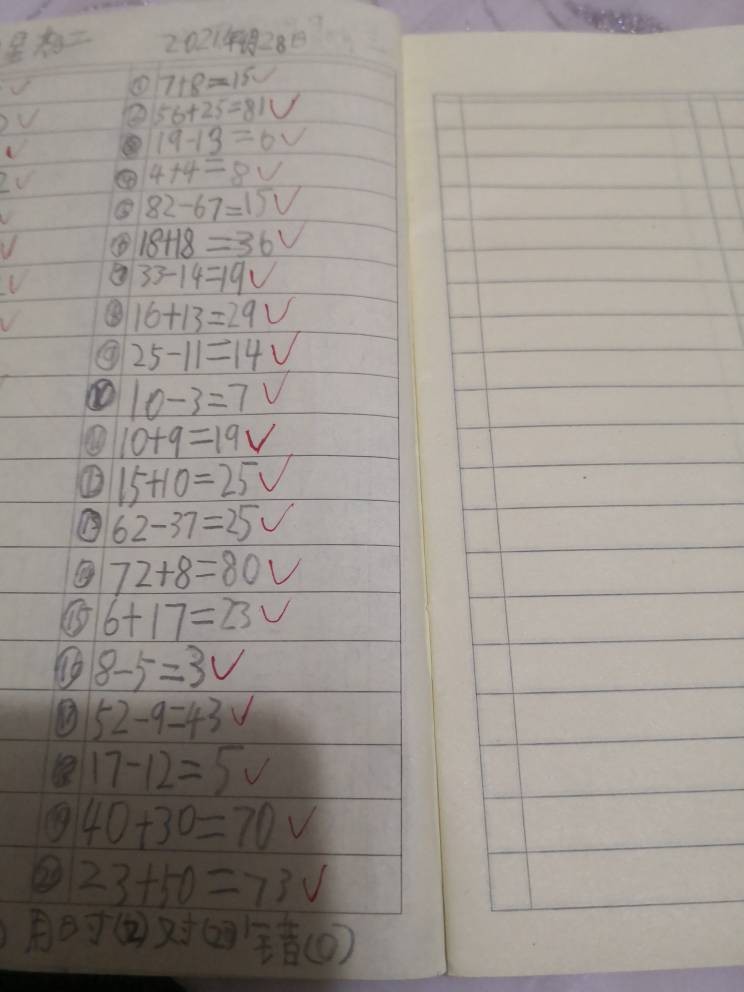 星期二 2021年9月28日
① 7+8=15
② 56+25=81
③ 19-13=6
④ 4+4=8
⑤ 82-67=15
⑥ 18+18=36
⑦ 33-14=19
⑧ 16+13=29
⑨ 25-11=14
⑩ 10-3=7
⑪ 10+9=19
⑫ 15+10=25
⑬ 62-37=25
⑭ 72+8=80
⑮ 6+17=23
⑯ 8-5=3
⑰ 52-9=43
⑱ 17-12=5
⑲ 40+30=70
⑳ 23+50=73
用时(2)对(20)错(0)